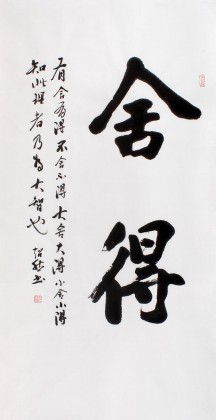 舍得
有舍有得 不舍不得 大舍大得 小舍小得
知此理者乃为大智也 书